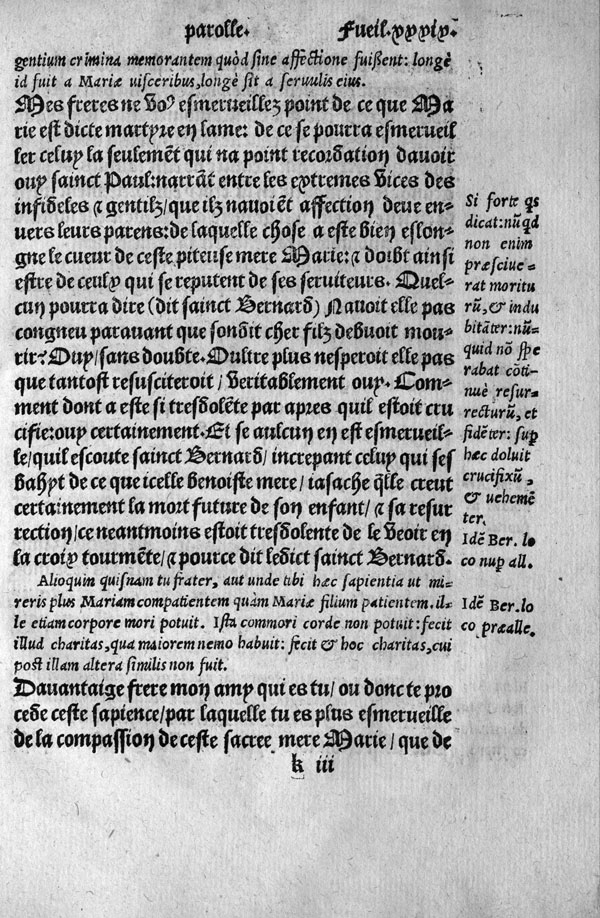 parolle. Fueil.xxxix.
gentium crimina memorantem quòd sine affectione fuißent: longè
id fuit a Mariæ visceribus, longè sit a seruulis eius.
Mes freres ne voꝰ esmerueillez point de ce que Ma
rie est dicte martyre en lame: de ce se pourra esmerueil
ler celuy la seulemẽt qui na point recordation dauoir
ouy sainct Paul: narrãt entre les extremes vices des
infideles ⁊ gentilz/ que ilz nauoiẽt affection deue en-
uers leurs parens: de laquelle chose a este bien eslon-
gne le cueur de ceste piteuse mere Marie: ⁊ doibt ainsi
estre de ceulx qui se reputent de ses seruiteurs. Quel-
cun pourra dire (dit sainct Bernard) Nauoit elle pas
congneu parauant que sondit cher filz debuoit mou-
rir? Ouy/ sans doubte. Oultre plus nesperoit elle pas
que tantost resusciteroit/ veritablement ouy. Com-
ment dont a este si tresdolẽte par apres quil estoit cru
cifie: ouy certainement. Et se aulcun en est esmerueil-
le/ quil escoute sainct Bernard/ increpant celuy qui ses
bahyt de ce que icelle benoiste mere/ iasache q̃lle creut
certainement la mort future de son enfant/ ⁊ sa resur
rection/ ce neantmoins estoit tresdolente de le veoir en
la croix tourmẽte/ ⁊ pource dit ledict sainct Bernard.
Alioquin quisnam tu frater, aut unde tibi hæc sapientia ut mi-
reris plus Mariam compatientem quàm Mariæ filium patientem. il-
le etiam corpore mori potuit. Ista commori corde non potuit: fecit
illud charitas, qua maiorem nemo habuit: fecit & hoc charitas, cui
post illam altera similis non fuit.
Dauantaige frere mon amy qui es tu/ ou donc te pro
cede ceste sapience/ par laquelle tu es plus esmerueille
de la compassion de ceste sacree mere Marie/ que de
k iii
Si forte q̃s
dicat: nũqd
non enim
præsciue-
rat moritu
rũ, & indu
bitãter: nũ-
quid nõ spe
rabat cõti-
nuè resur-
recturũ, et
fidẽter: sup
hæc doluit
crucifixũ,
& uehemẽ
ter.
Idẽ Ber. lo
co nup all.
Idẽ Ber. lo
co præalle.